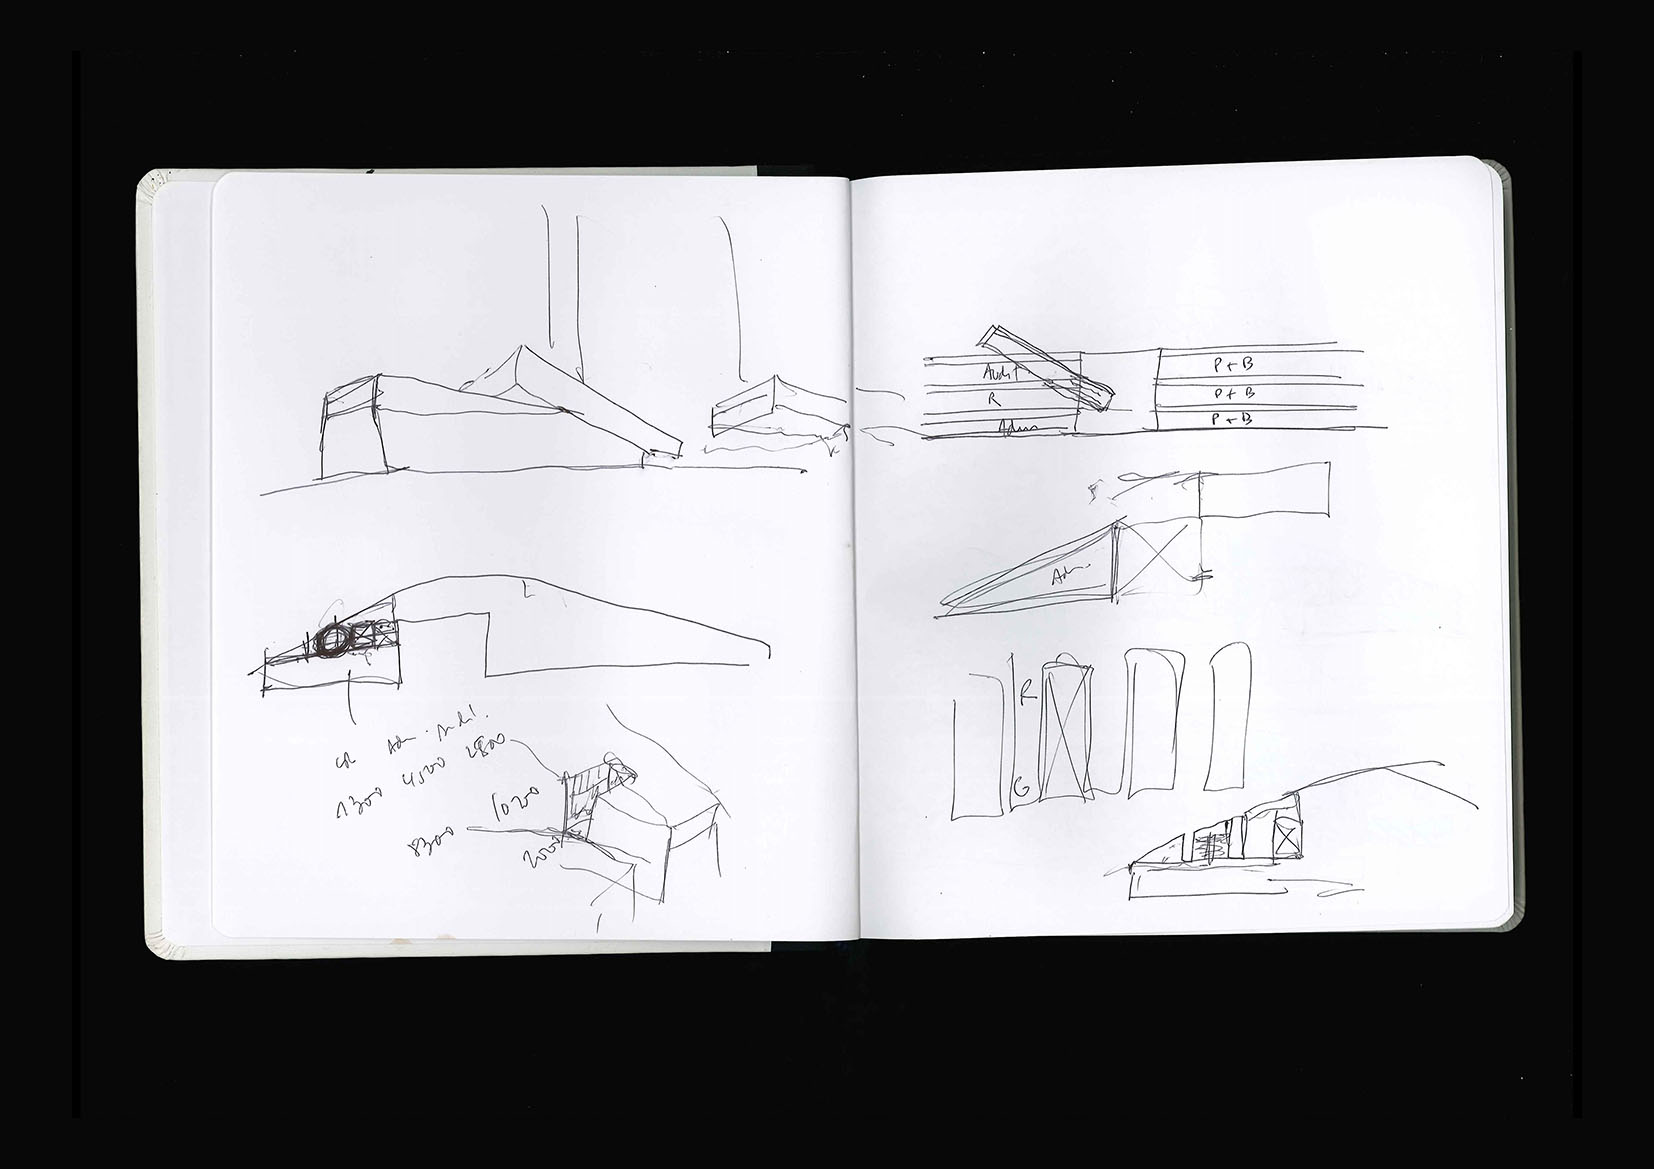 Adm. Audit.
1300 4500 2800
1020
8300
2000
Audit
R
Adm
P+B
P+B
P+B
Adm.
R
G